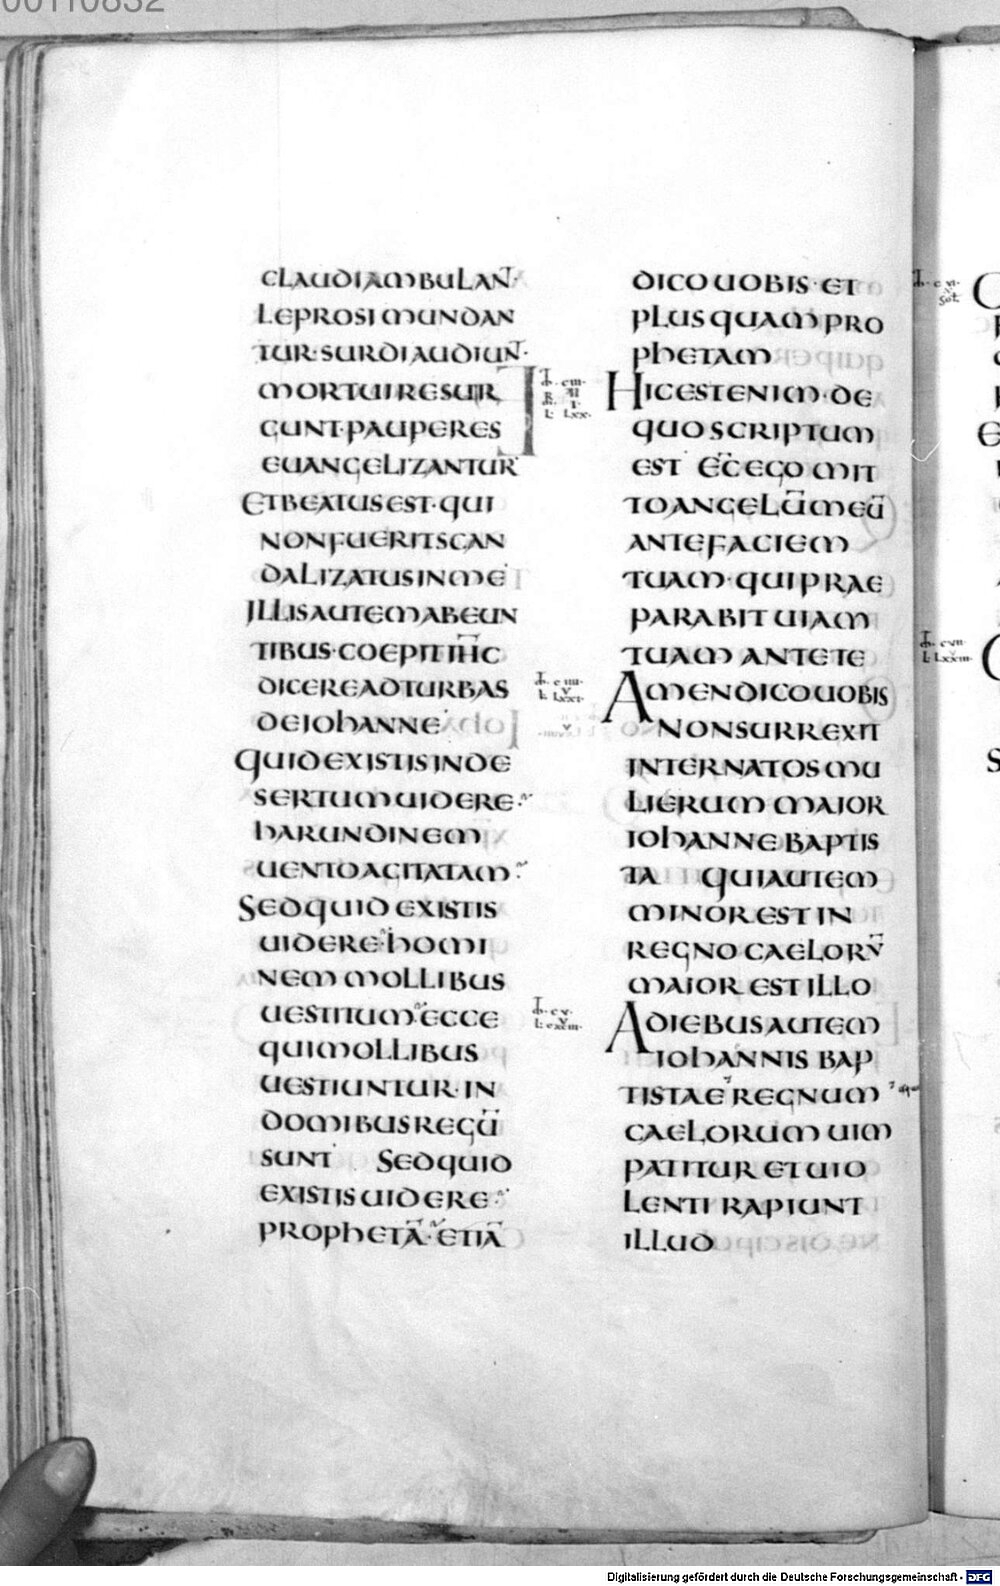 00110832
CLAUDI AMBULANT·
LEPROSI MUNDAN
TUR· SURDI AUDIUNT·
MORTUI RESUR
GUNT· PAUPERES
EUANGELIZANTUR
ET BEATUS EST· QUI
NON FUERIT SCAN
DALIZATUS IN ME
ILLIS AUTEM ABEUN
TIBUS· COEPIT IHC
DICERE AD TURBAS
DE IOHANNE
QUID EXISTIS IN DE
SERTUM UIDERE
HARUNDINEM
UENTO AGITATAM
SED QUID EXISTIS
UIDERE HOMI
NEM MOLLIBUS
UESTITUM ECCE
QUI MOLLIBUS
UESTIUNTUR· IN
DOMIBUS REGŪ
SUNT SED QUID
EXISTIS UIDERE
PROPHETĀ· ETIĀ
DICO UOBIS· ET
PLUS QUAM PRO
PHETAM
HIC EST ENIM· DE
QUO SCRIPTUM
EST ECCE EGO MIT
TO ANGELŪ MEŪ
ANTE FACIEM
TUAM· QUI PRAE
PARABIT UIAM
TUAM ANTE TE
AMEN DICO UOBIS
NON SURREXIT
INTER NATOS MU
LIERUM MAIOR
IOHANNE BAPTIS
TA QUI AUTEM
MINOR EST IN
REGNO CAELORŪ
MAIOR EST ILLO
A DIEBUS AUTEM
IOHANNIS BAP
TISTAE REGNUM
CAELORUM UIM
PATITUR ET UIO
LENTI RAPIUNT
ILLUD
Digitalisierung gefördert durch die Deutsche Forschungsgemeinschaft - DFG